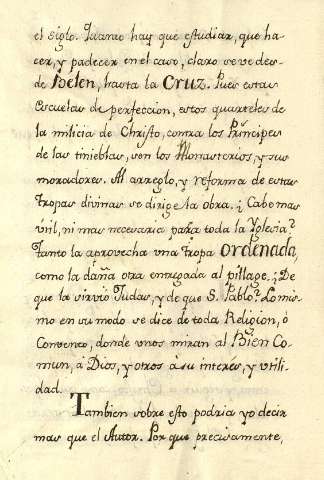 el siglo. Quanto hay que estudiar, que ha-
cer, y padecer en el caso, claro se ve des-
de Belen, hasta la Cruz. Pues estas
escuelas de perfeccion, estos quarteles de
la milicia de Christo, contra los Principes
de las tinieblas, son los Monasterios, y sus
moradores. Al arreglo, y reforma de estas
tropas divinas se dirige la obra. ¿Cabe mas
util, ni mas necesaria para toda la Yglesia?
Tanto la aprovecha una tropa Ordenada,
como la daña otra entregada al pillage. ¿De
que la sirvio Judas, y de que S. Pablo? Lo mis-
mo en su modo se dice de toda Religion, ò
Convento, donde unos miran al Bien Co-
mun, à Dios, y otros à su interès, y utili-
dad.
Tambien sobre esto podria yo decir
mas que el Autor. Por que precisamente,